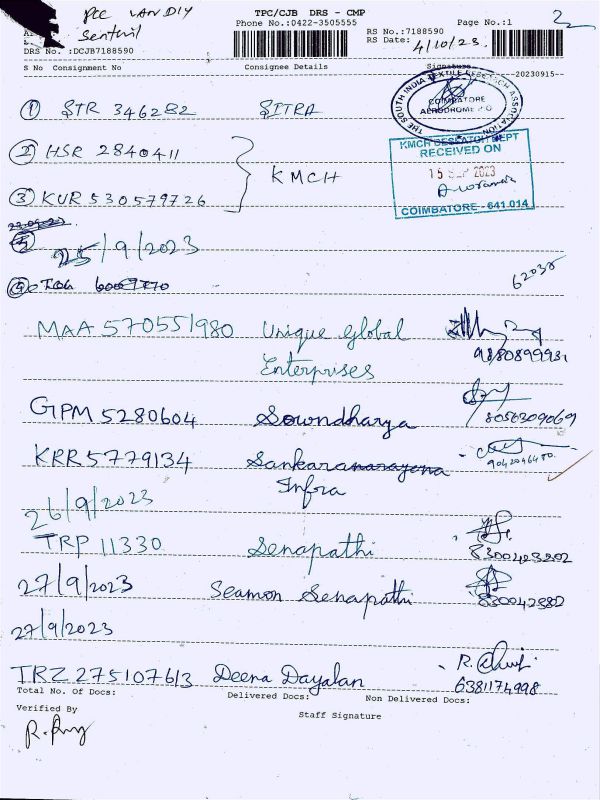 PCC VAN DIY
Senthil
TPC/CJB DRS - CMP
Phone No.:0422-3505555
Page No.:1
2
RS No.:7188590
RS Date: 4/10/23.
DRS No :DCJB7188590
S No Consignment No Consignee Details Signature 20230915
① STR 346282 SITRA
THE SOUTH INDIA TEXTILE RESEARCH ASSOCIATION
COIMBATORE
AERODROME P.O
② HSR 2840411
KMCH
③ KUR 530579726
KMCH DESPATCH DEPT
RECEIVED ON
15 SEP 2023
COIMBATORE - 641 014
25/9/2023
62038
MAA 570551980 Unique Global
Enterprises
GPM 5280604 Sowndharya 8056309069
KRR 5779134 Sankaranarayana
Infra
26/9/2023
TRP 11330 Senapathi 8300423202
27/9/2023 Seamon Senapathi
27/9/2023
TRZ 275107613 Deena Dayalan 6381174998
Total No. Of Docs: Delivered Docs: Non Delivered Docs:
Verified By Staff Signature